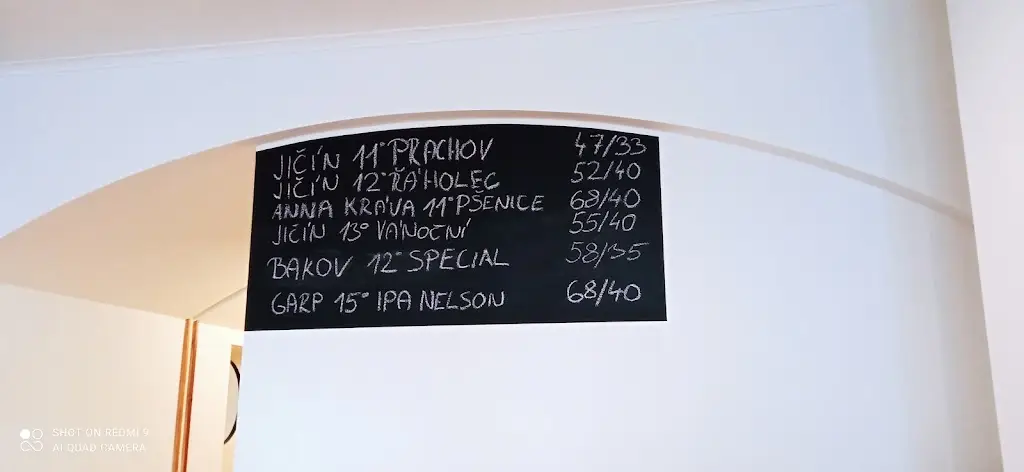 JIČÍN 11° PRACHOV 47/33
JIČÍN 12° ŘÁHOLEC 52/40
ANNA KRÁVA 11° PŠENICE 68/40
JIČÍN 13° VÁNOČNÍ 55/40
BAKOV 12° SPECIAL 58/35
GARP 15° IPA NELSON 68/40
SHOT ON REDMI 9
AI QUAD CAMERA